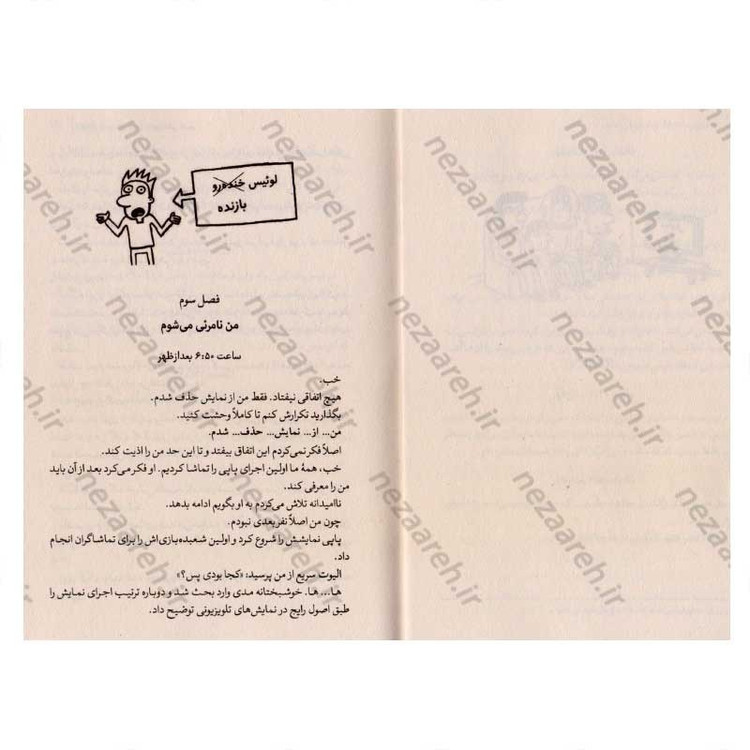 لوئیس خنده‌رو
بازنده
فصل سوم
من نامرئی می‌شوم
ساعت ۶:۵۰ بعدازظهر
خب.
هیچ اتفاقی نیفتاد. فقط من از نمایش حذف شدم.
بگذارید تکرارش کنم تا کاملاً وحشت کنید.
من... از... نمایش... حذف... شدم.
اصلاً فکر نمی‌کردم این اتفاق بیفتد و تا این حد من را اذیت کند.
خب، همهٔ ما اولین اجرای پاپی را تماشا کردیم. او فکر می‌کرد بعد از آن باید
من را معرفی کند.
ناامیدانه تلاش می‌کردم به او بگویم ادامه بدهد.
چون من اصلاً نفر بعدی نبودم.
پاپی نمایشش را شروع کرد و اولین شعبده‌بازی‌اش را برای تماشاگران انجام
داد.
الیوت سریع از من پرسید: «کجا بودی پس؟»
ها... ها. خوشبختانه مدی وارد بحث شد و دوباره ترتیب اجرای نمایش را
طبق اصول رایج در نمایش‌های تلویزیونی توضیح داد.
nezaareh.ir
nezaareh.ir
nezaareh.ir
nezaareh.ir
nezaareh.ir
nezaareh.ir
nezaareh.ir
nezaareh.ir
nezaareh.ir
nezaareh.ir
nezaareh.ir
nezaareh.ir